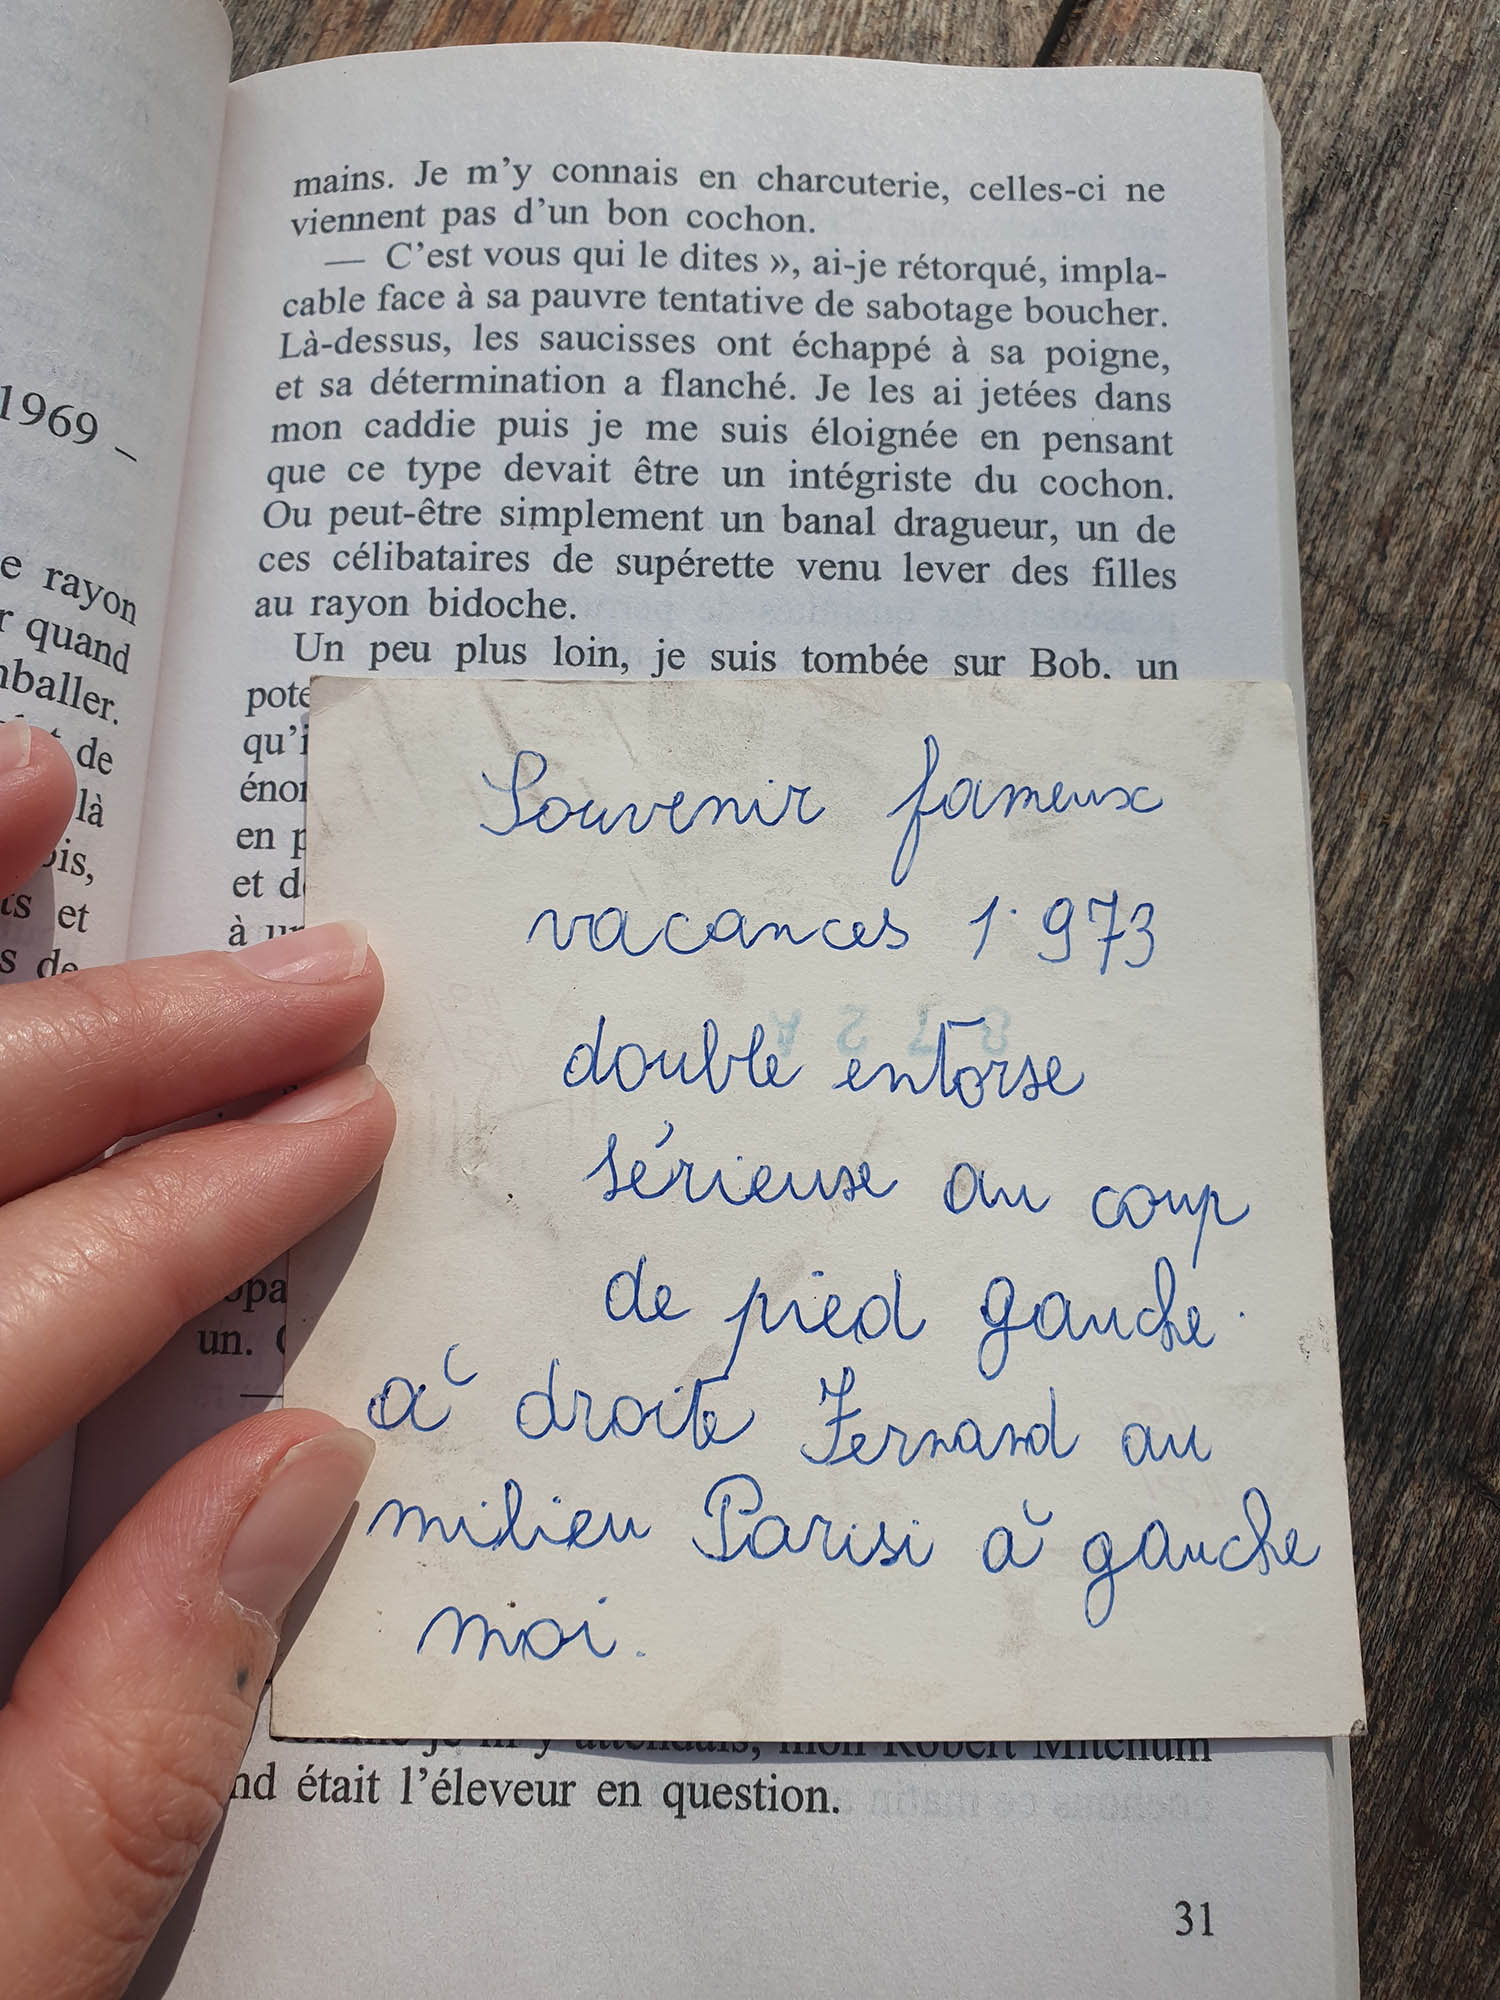 1969 –
e rayon
r quand
mballer.
de
là
ois,
ts et
s de
mains. Je m'y connais en charcuterie, celles-ci ne
viennent pas d'un bon cochon.
— C'est vous qui le dites », ai-je rétorqué, impla-
cable face à sa pauvre tentative de sabotage boucher.
Là-dessus, les saucisses ont échappé à sa poigne,
et sa détermination a flanché. Je les ai jetées dans
mon caddie puis je me suis éloignée en pensant
que ce type devait être un intégriste du cochon.
Ou peut-être simplement un banal dragueur, un de
ces célibataires de supérette venu lever des filles
au rayon bidoche.
Un peu plus loin, je suis tombée sur Bob, un
pote
qu'i
énor
en p
et d
à un
opa
un.
Souvenir fameux
vacances 1.973
872A
double entorse
sérieuse au coup
de pied gauche.
à droite Fernand au
milieu Parisi à gauche
moi.
je m'y attendais, mon Robert Mitchum
nd était l'éleveur en question.
31